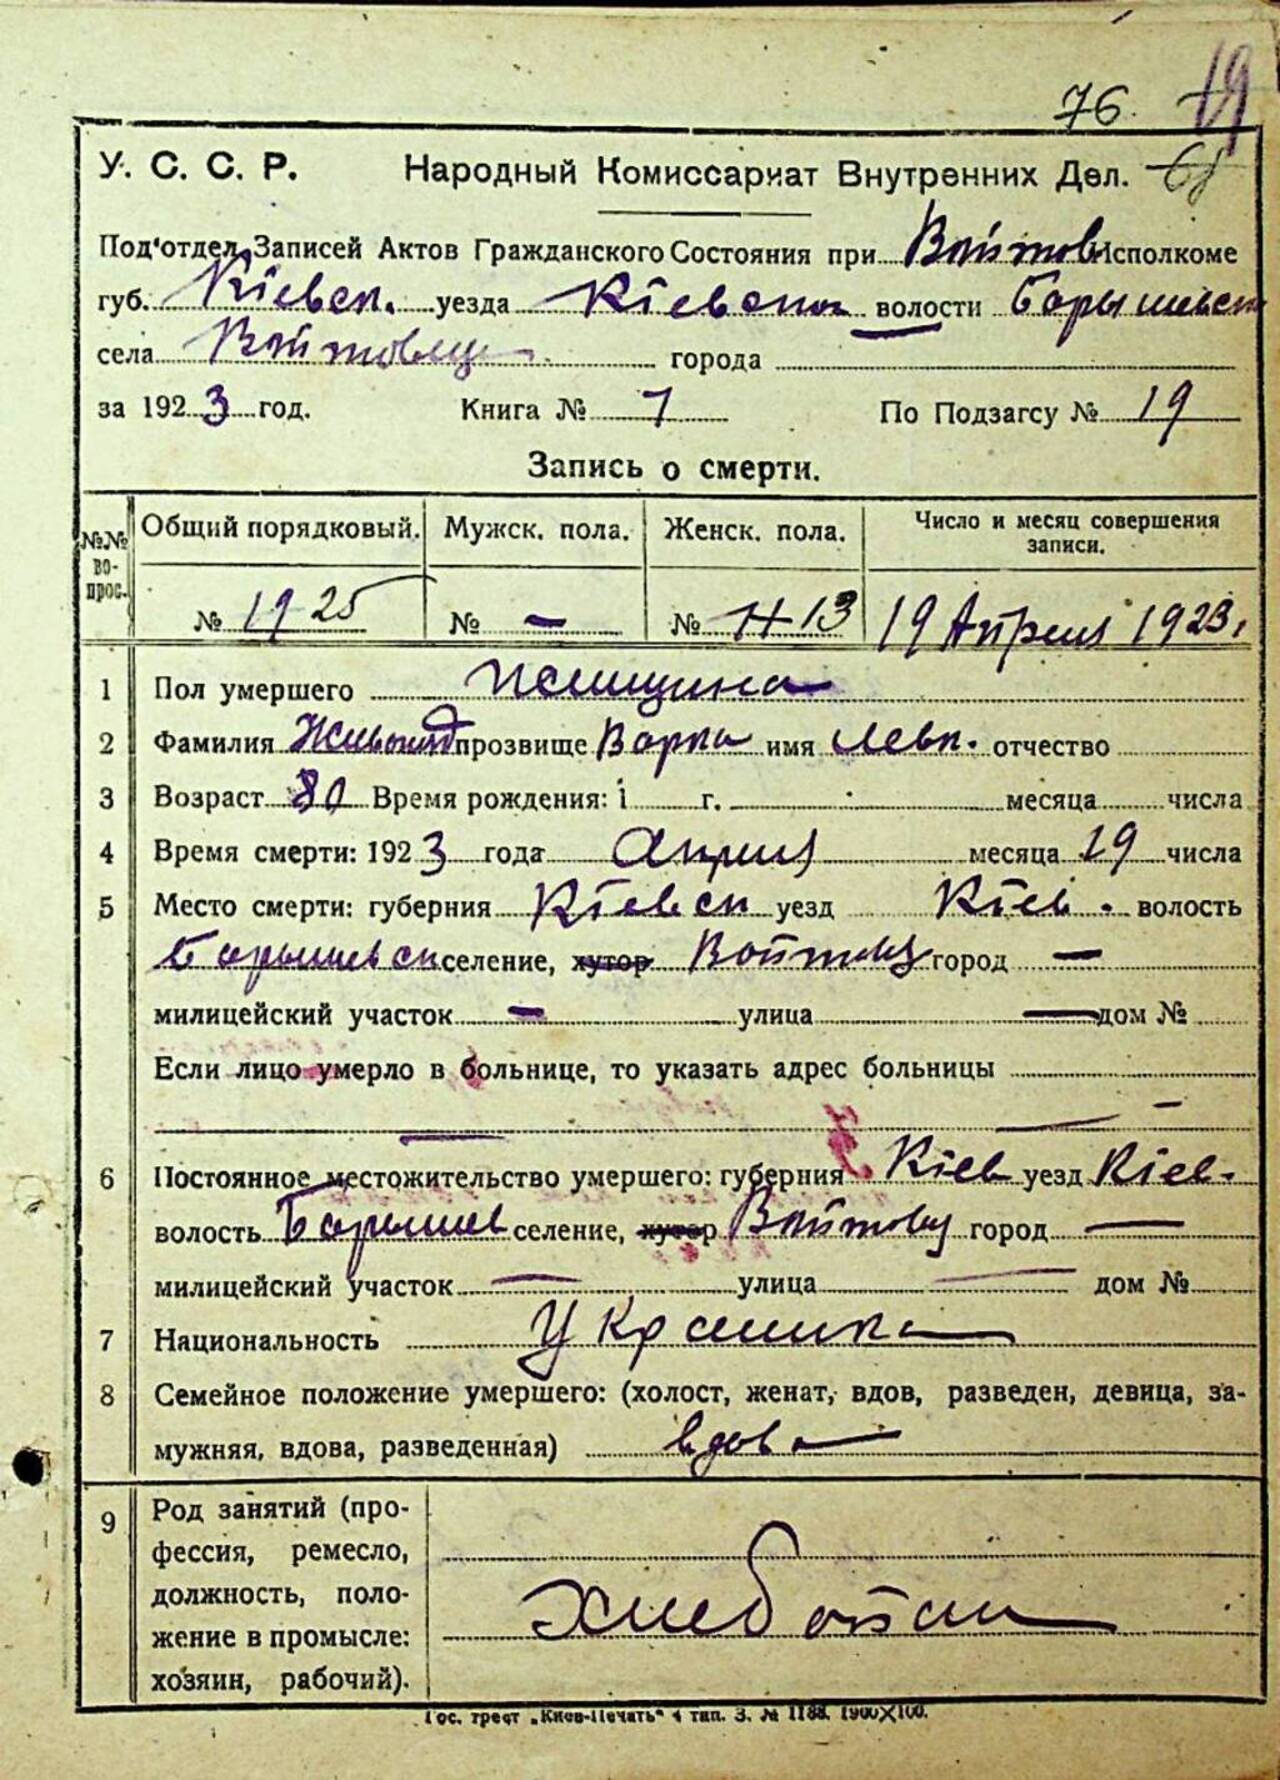 76. 19
У. С. С. Р. Народный Комиссариат Внутренних Дел.
Под'отдел Записей Актов Гражданского Состояния при Войтов Исполкоме
губ. Кіевск. уезда Кіевск волости Барышевск
села Войтовцы города
за 1923 год. Книга № 7 По Подзагсу № 19
Запись о смерти.
№№ вопрос. Общий порядковый. Мужск. пола. Женск. пола. Число и месяц совершения записи.
№ 19 25 № — № 13 19 Апреля 1923.
1 Пол умершего женщина
2 Фамилия прозвище Варка имя Левк. отчество
3 Возраст 80 Время рождения: 1 г. месяца числа
4 Время смерти: 1923 года Апреля месяца 19 числа
5 Место смерти: губерния Кіевск уезд Кіев. волость
Барышевск селение, хутор Войтовц город —
милицейский участок — улица — дом №
Если лицо умерло в больнице, то указать адрес больницы
6 Постоянное местожительство умершего: губерния Кіев уезд Кіев.
волость Барышев селение, хутор Войтовц город —
милицейский участок — улица — дом №
7 Национальность Украинка
8 Семейное положение умершего: (холост, женат, вдов, разведен, девица, за-
мужняя, вдова, разведенная) вдова
9 Род занятий (про-
фессия, ремесло,
должность, поло-
жение в промысле:
хозяин, рабочий).
Гос. трест „Киев-Печать" 4 тип. З. № 1188. 1900×100.